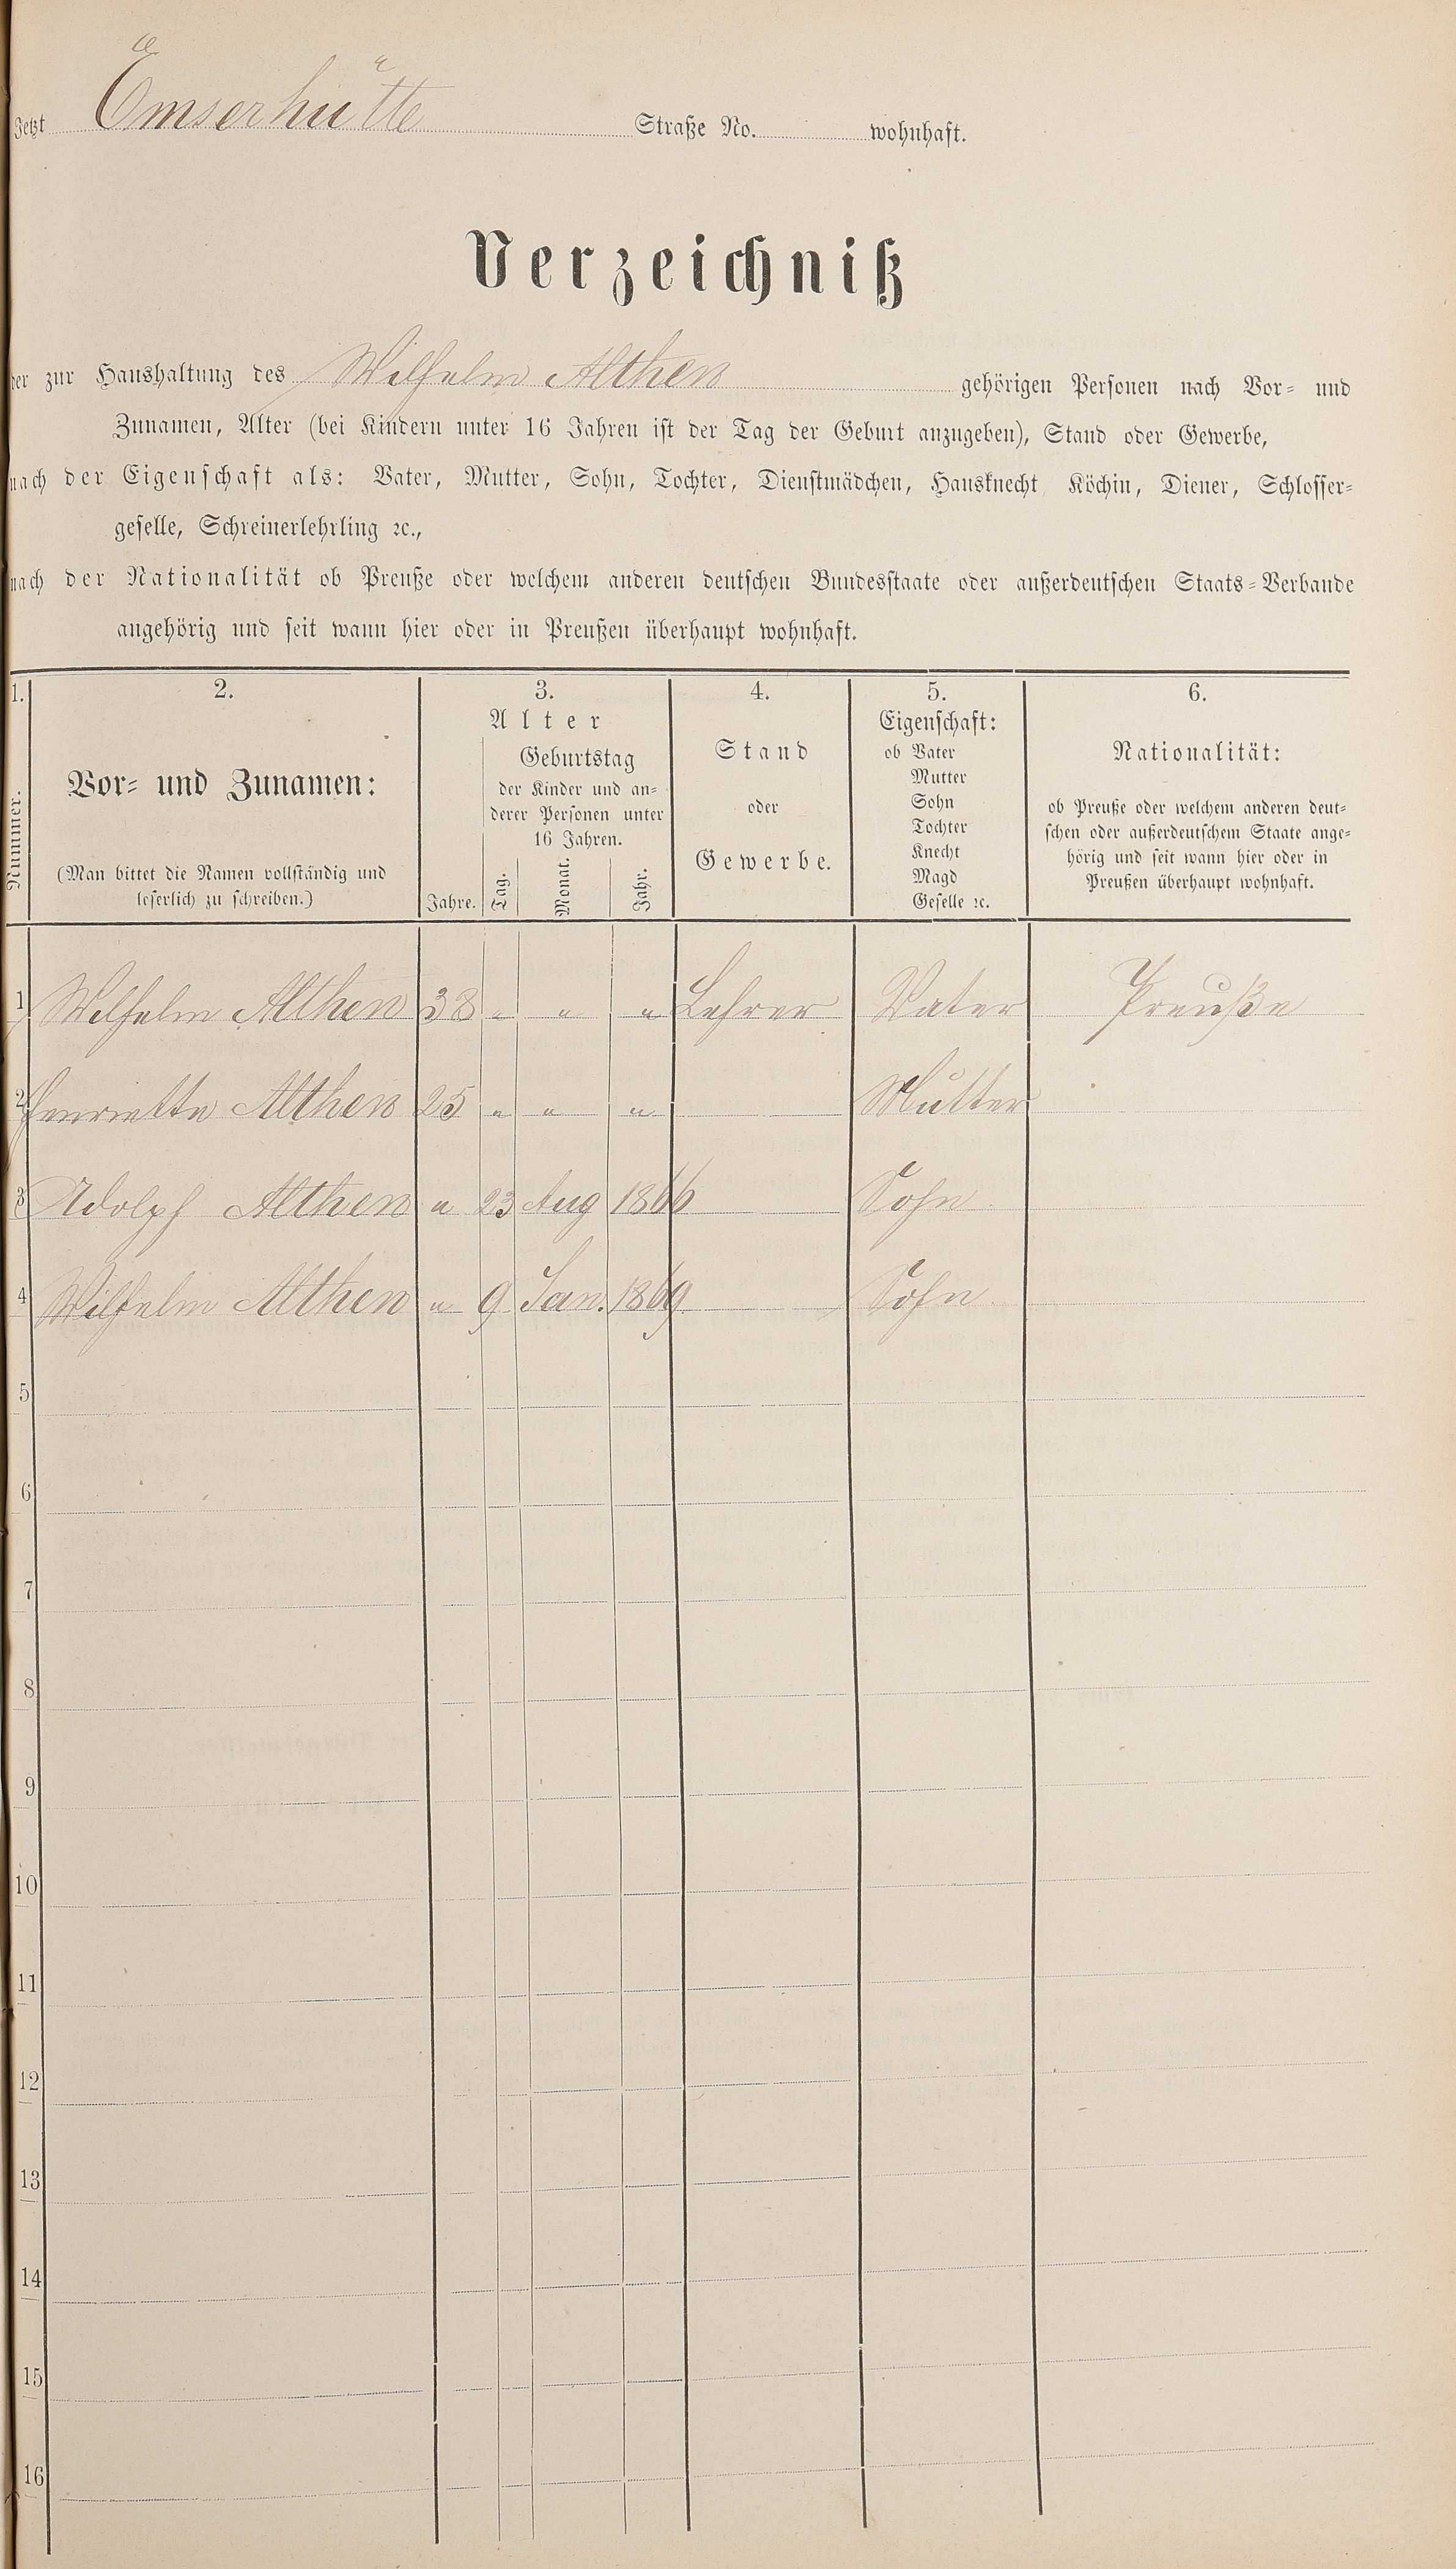 Jetzt Emserhütte Straße No. wohnhaft.
Verzeichniß
der zur Haushaltung des Wilhelm Althen gehörigen Personen nach Vor- und
Zunamen, Alter (bei Kindern unter 16 Jahren ist der Tag der Geburt anzugeben), Stand oder Gewerbe,
nach der Eigenschaft als: Vater, Mutter, Sohn, Tochter, Dienstmädchen, Hausknecht Köchin, Diener, Schlosser-
geselle, Schreinerlehrling ꝛc.,
nach der Nationalität ob Preuße oder welchem anderen deutschen Bundesstaate oder außerdeutschen Staats-Verbande
angehörig und seit wann hier oder in Preußen überhaupt wohnhaft.
1.
Nummer.
2.
Vor- und Zunamen:
(Man bittet die Namen vollständig und
leserlich zu schreiben.)
3.
Alter
Jahre.
Geburtstag
der Kinder und an-
derer Personen unter
16 Jahren.
Tag. Monat. Jahr.
4.
Stand
oder
Gewerbe.
5.
Eigenschaft:
ob Vater
Mutter
Sohn
Tochter
Knecht
Magd
Geselle ꝛc.
6.
Nationalität:
ob Preuße oder welchem anderen deut-
schen oder außerdeutschem Staate ange-
hörig und seit wann hier oder in
Preußen überhaupt wohnhaft.
1 Wilhelm Althen 38 " " " Lehrer Vater Preuße
2 Henriette Althen 25 " " " Mutter
3 Adolph Althen " 23 Aug 1866 Sohn
4 Wilhelm Althen " 9 Jan. 1869 Sohn
5
6
7
8
9
10
11
12
13
14
15
16